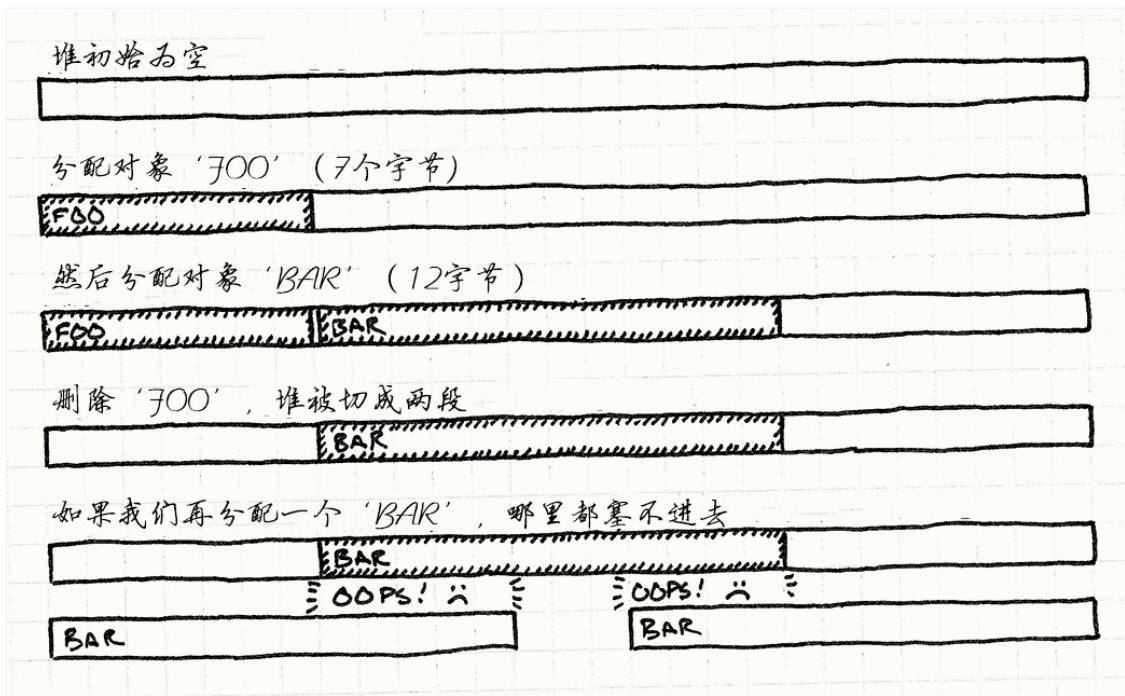 堆初始为空
分配对象 'FOO' (7个字节)
FOO
然后分配对象 'BAR' (12字节)
FOO BAR
删除 'FOO', 堆被切成两段
BAR
如果我们再分配一个 'BAR', 哪里都塞不进去
BAR
OOPS! OOPS!
BAR BAR